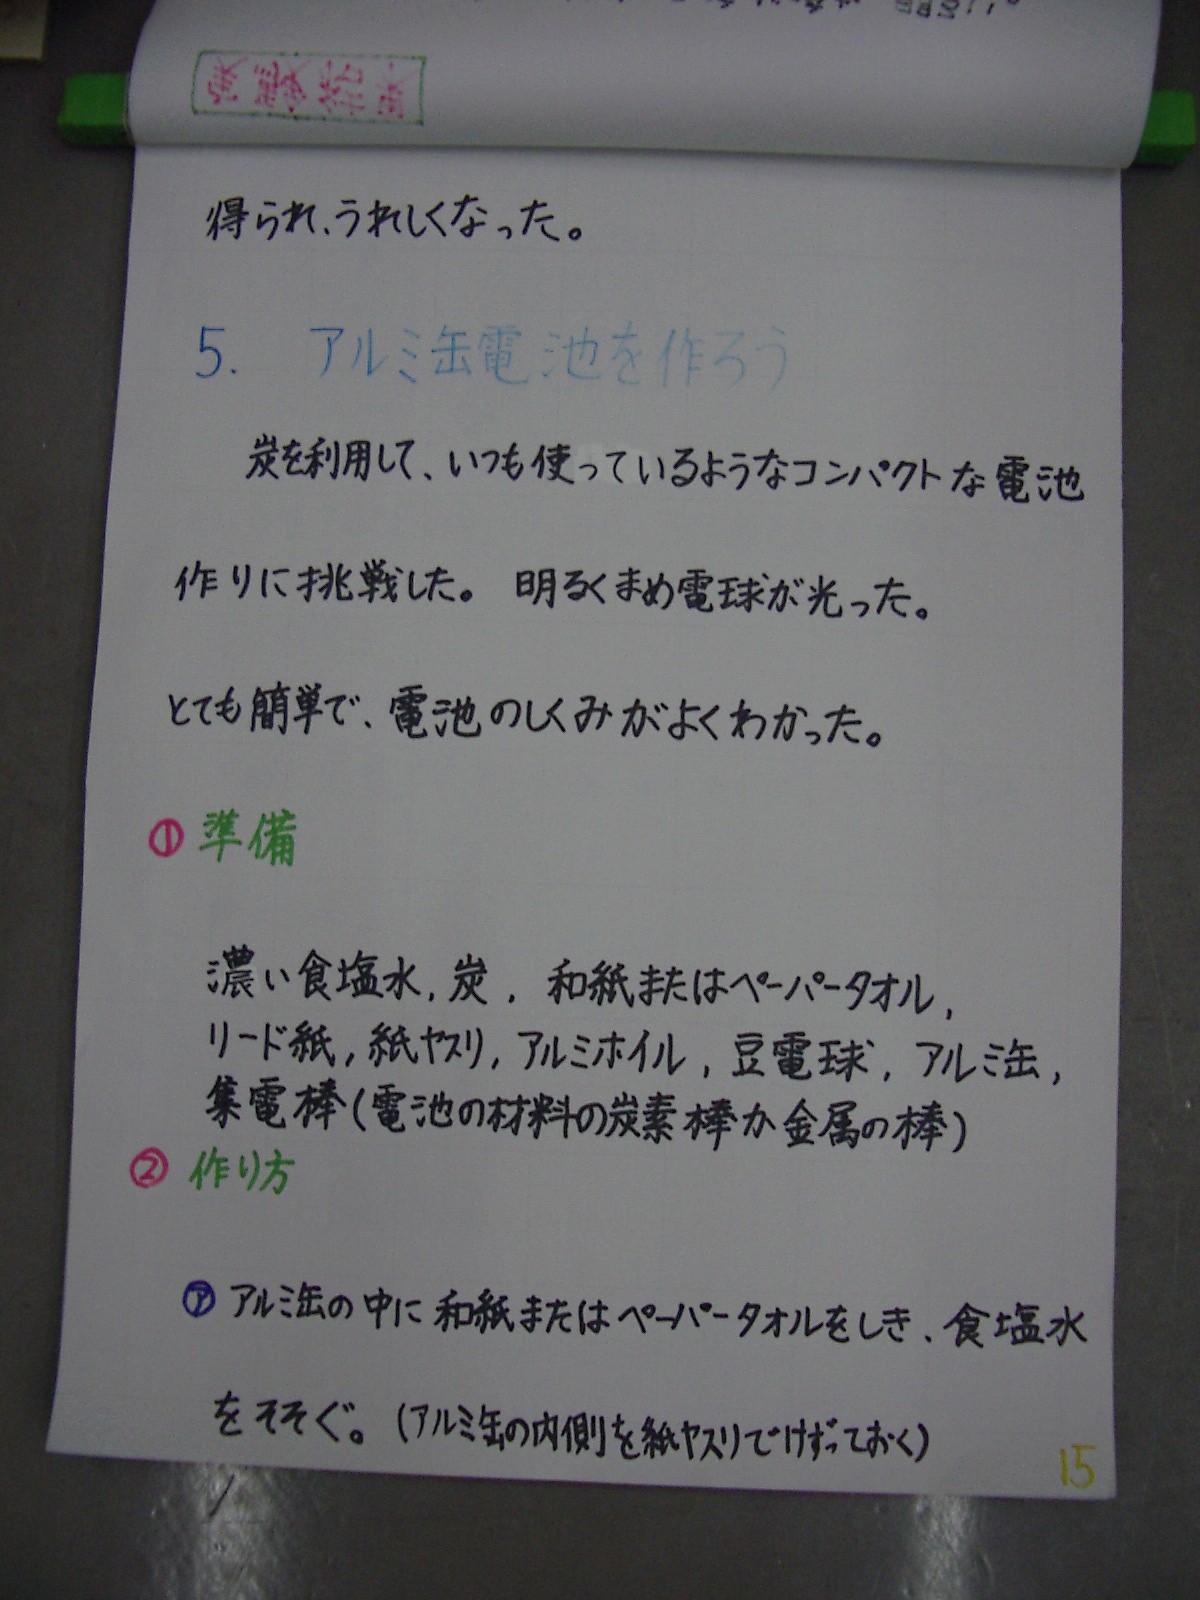 得られ、うれしくなった。
5. アルミ缶電池を作ろう
炭を利用して、いつも使っているようなコンパクトな電池
作りに挑戦した。 明るくまめ電球が光った。
とても簡単で、電池のしくみがよくわかった。
① 準備
濃い食塩水, 炭, 和紙またはペーパータオル,
リード紙, 紙ヤスリ, アルミホイル, 豆電球, アルミ缶,
集電棒(電池の材料の炭素棒か金属の棒)
② 作り方
㋐ アルミ缶の中に和紙またはペーパータオルをしき、食塩水
をそそぐ。(アルミ缶の内側を紙ヤスリでけずっておく)
15